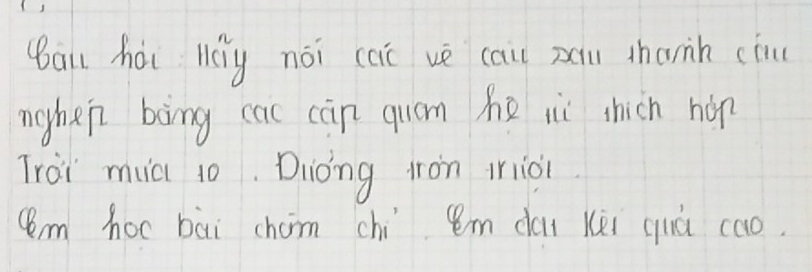 Câu hỏi: Hãy nối các vế câu sau thành câu
nghép bằng các cặp quan hệ từ thích hợp
Trời mưa to. Đường trơn trượt.
Em học bài chăm chỉ. Em đạt kết quả cao.